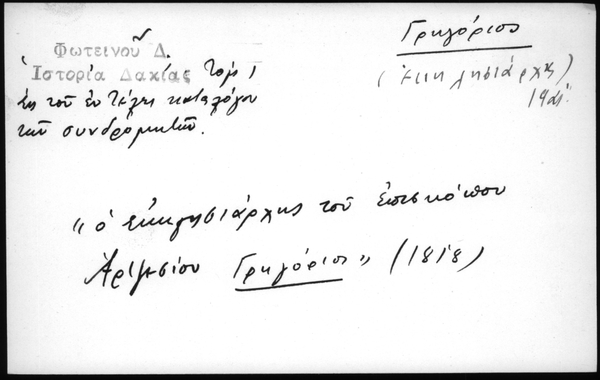 Φωτεινοῦ Δ.
Ἱστορία Δακίας Τομ. 1
Ἐκ τοῦ ἐν τέλει καταλόγου
τῶν συνδρομητῶν.
Γρηγόριος
(Ἐκκλησιάρχης)
19ος
"ὁ ἐκκλησιάρχης τοῦ ἐπισκόπου
Ἀρζεσίου Γρηγόριος" (1818)